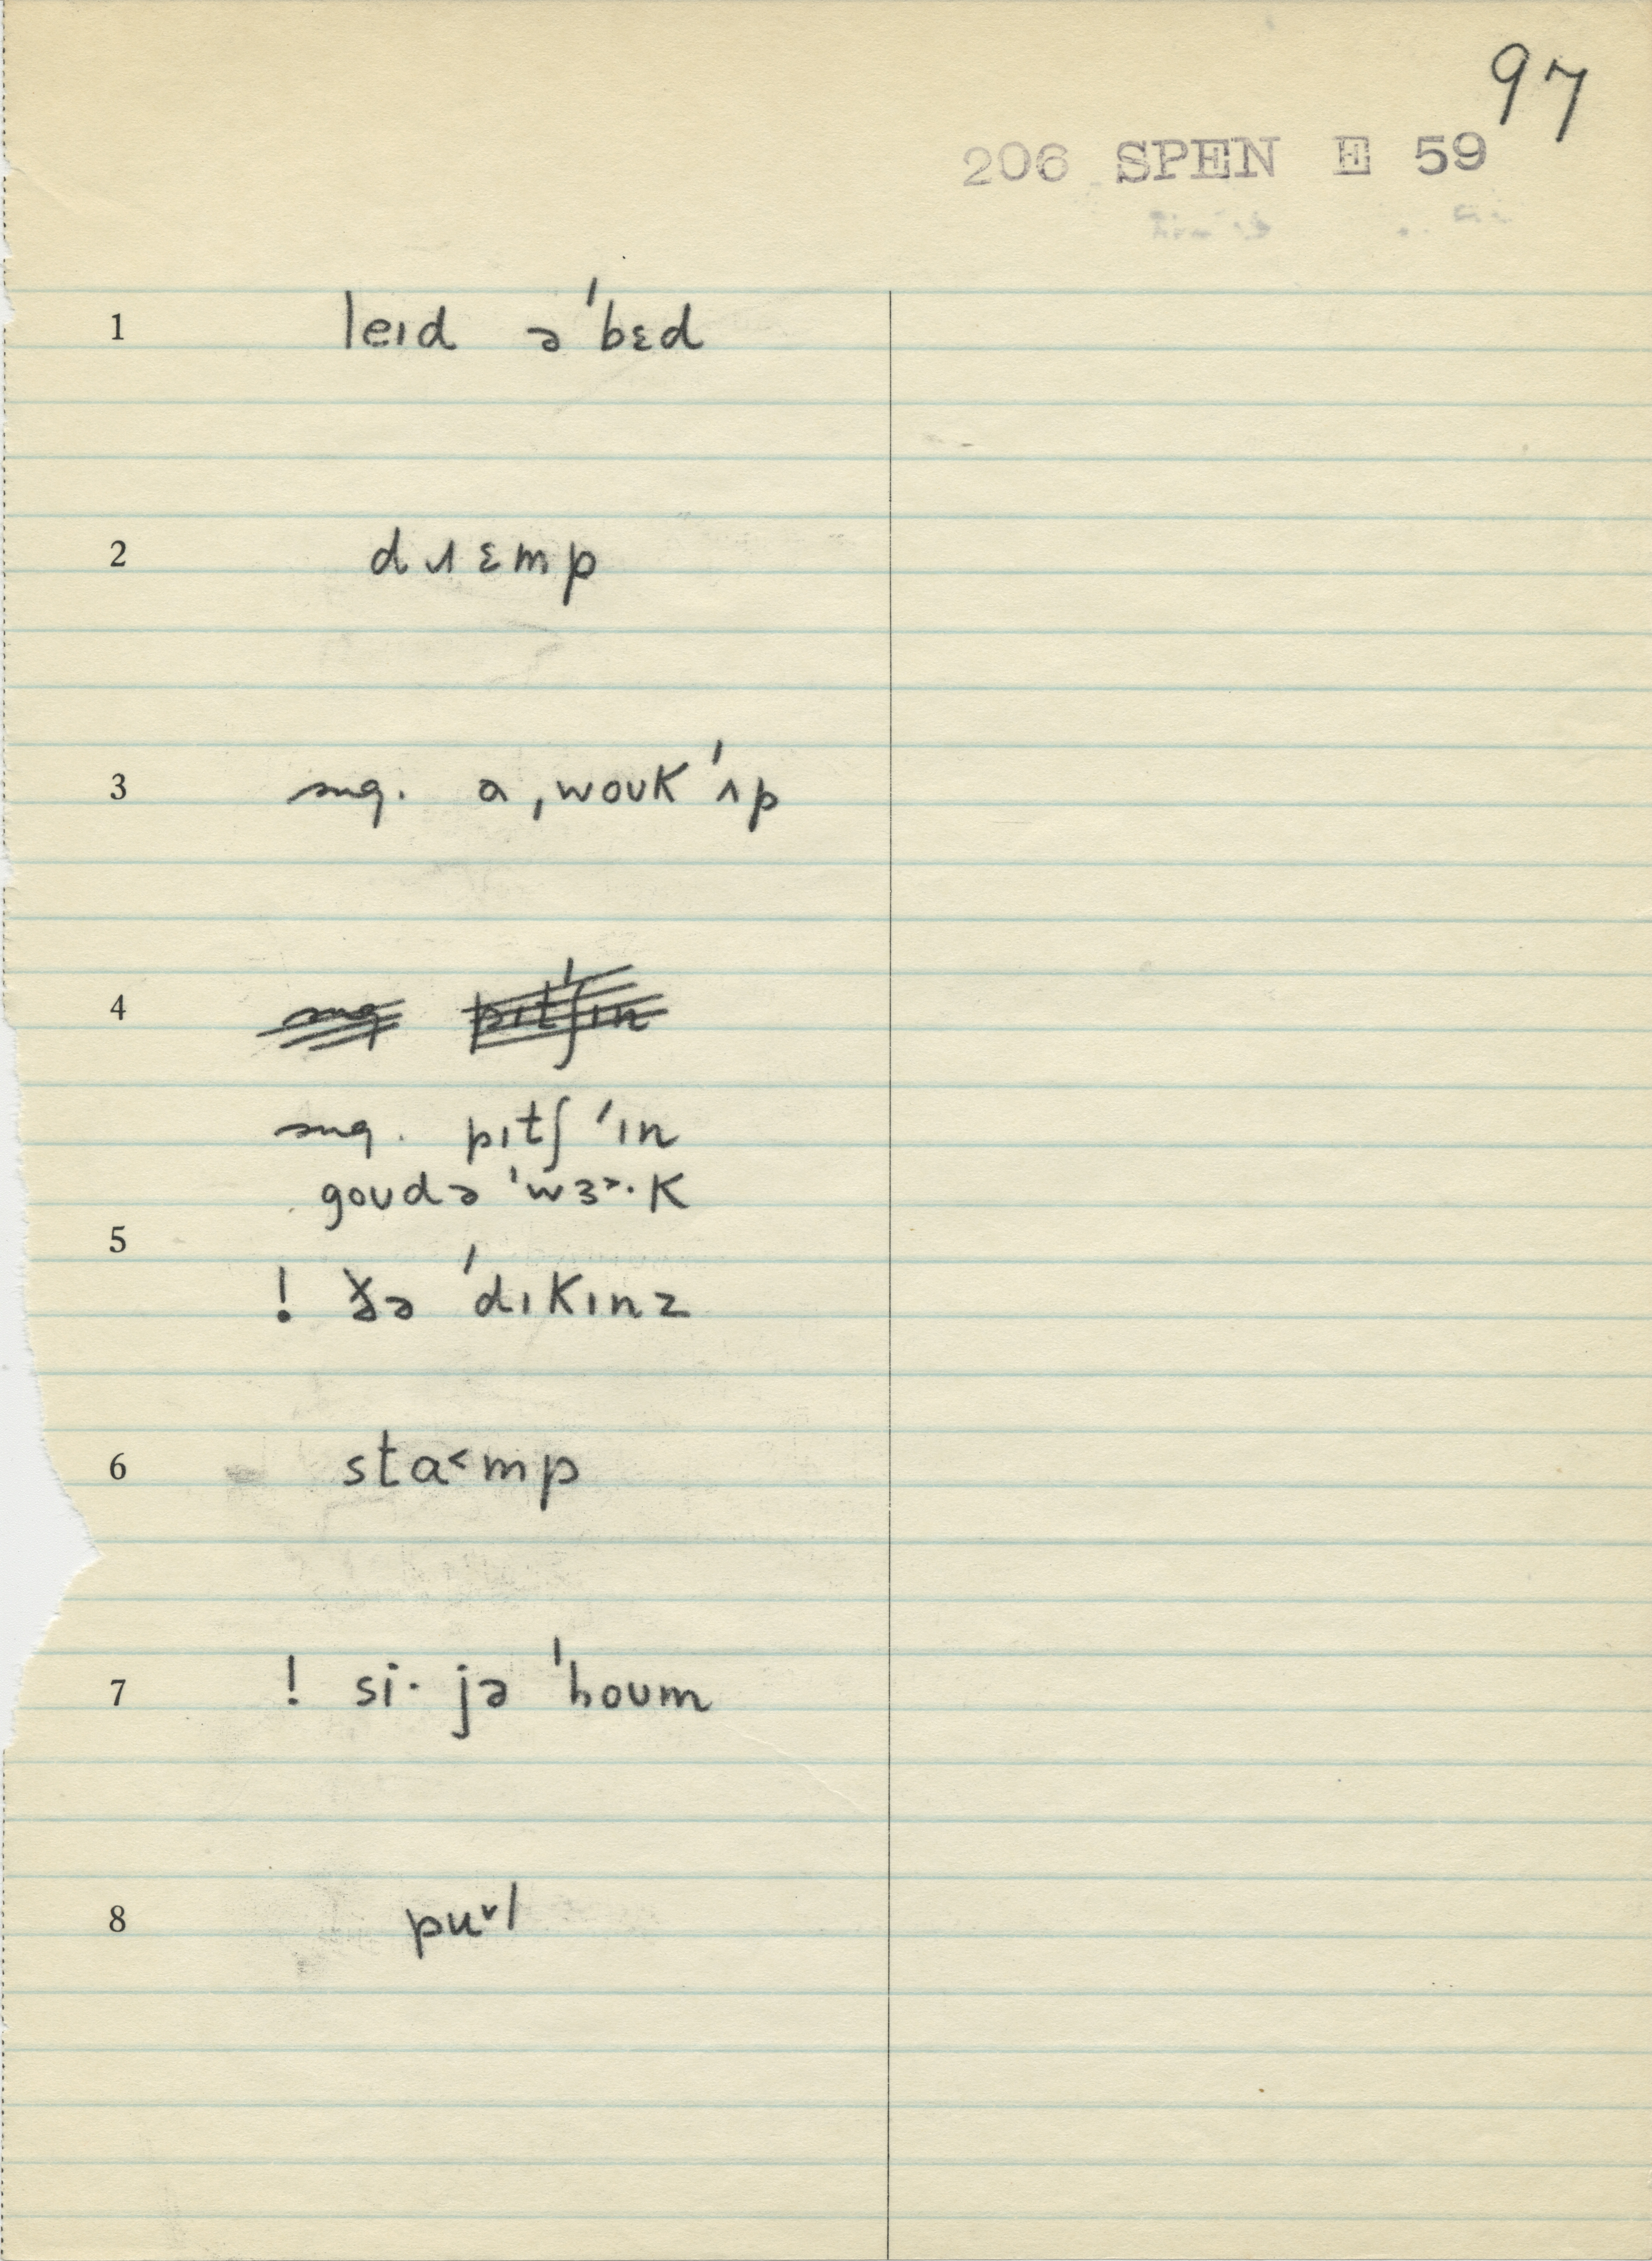 97
206 SPEN E 59
1 leɪd ə ˈbɛd
2 dɹɛmp
3 sug. a ˌwoʊk ˈʌp
4 sug pɪtʃˈɪn
sug. pɪtʃ ˈɪn
goʊdə ˈwɜ˃·k
5
! ðə ˈdɪkɪnz
6 sta˂mp
7 ! si· jə ˈhoʊm
8 pu˅l